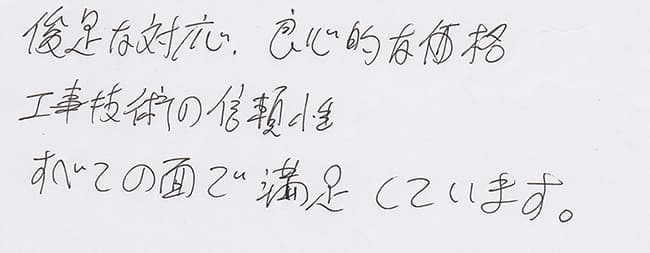 俊足な対応、良心的な価格
工事技術の信頼性
すべての面で満足しています。